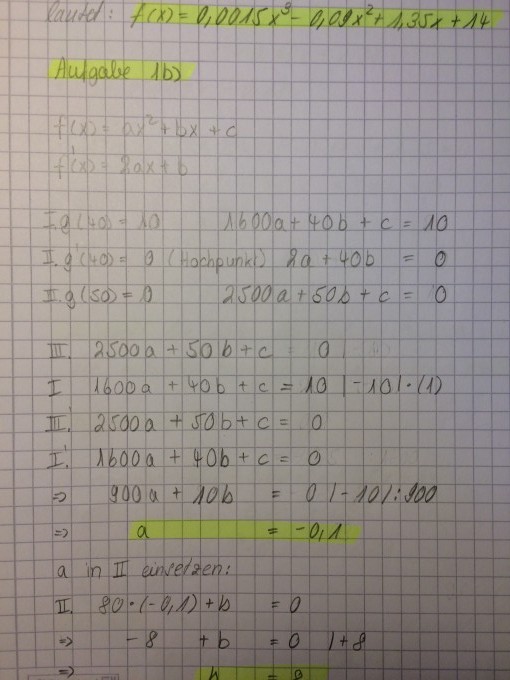 lautet: f(x) = 0,0015x³ - 0,09x² + 1,35x + 14
Aufgabe 1b)
f(x) = ax² + bx + c
f'(x) = 2ax + b
I. g(40) = 10 1600a + 40b + c = 10
II. g'(40) = 0 (Hochpunkt) 2a + 40b = 0
II. g(50) = 0 2500a + 50b + c = 0
III. 2500a + 50b + c = 0
I 1600a + 40b + c = 10 | -10 | · (1)
III. 2500a + 50b + c = 0
I'. 1600a + 40b + c = 0
=> 900a + 10b = 0 | -10 | : 900
=> a = -0,1
a in II einsetzen:
II. 80 · (-0,1) + b = 0
=> -8 + b = 0 | +8
=> b = 8